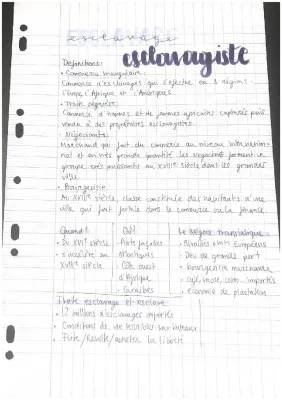 esclavage
esclavagiste
Définitions:
• Commerce triangulaire:
Commerce d'esclavages qui s'effectue en 3 régions:
l'Europe l'Afrique et l'Amériques
• Traite négrière:
Commerce d'hommes et de femmes africains capturés pour
vendu à des propriétaires esclavagistes.
• Négociants:
Marchand qui fait du commerce au niveau internation-
nal et en très grande quantité les négociants forment un
groupe très puissants au XVIIIe siècle dont les grandes
ville.
• Bourgeoisie
Au XVIIIe siècle, classe constituée des habitants d'une
ville qui font fortune dans le commerce ou la finance.
Quand?
• Du XVIe siècle
s'accélère au
XVIIIe siècle
Où?
• Atlantiques
• Côte ouest
d'Afrique
• Caraïbes
Le négoce transatlantique:
européens
• Des de grands port
• bourgeoisie marchande
• café, sucre, coton importés
• économie de plantation
Traite esclavage et esclave
• 12 millions d'esclavages importés
• Conditions de vie terribles sur bateaux
• Fuite/Révolte/acheter la liberté